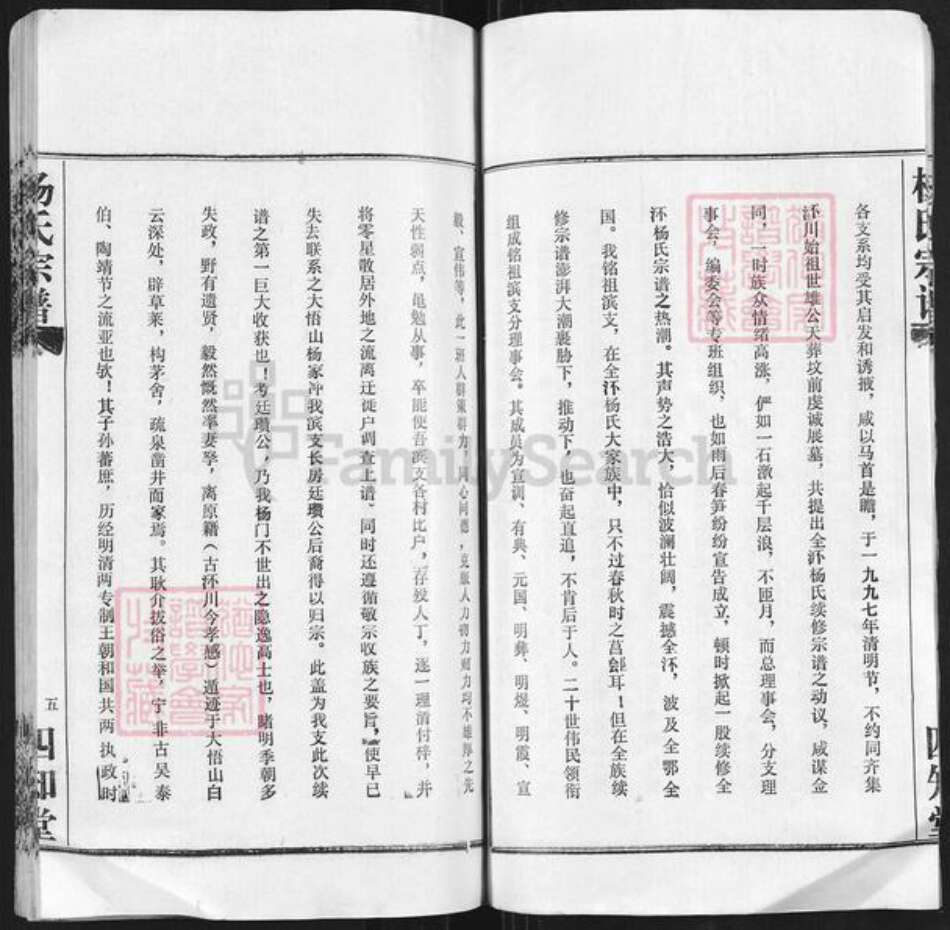 杨氏宗谱
四知堂
各支系均受其启发和诱掖，咸以马首是瞻，于一九九七年清明节，不约同齐集
环川始祖世雄公天葬坟前虔诚展墓，共提出全环杨氏续修宗谱之动议，咸谋佥
同，一时族众情绪高涨，俨如一石激起千层浪，不匝月，而总理事会，分支理
事会，编委会等专班组织，也如雨后春笋纷纷宣告成立，顿时掀起一股续修全
环杨氏宗谱之热潮。其声势之浩大，恰似波澜壮阔，震撼全环，波及全鄂全
国。我铭祖滨支，在全环杨氏大家族中，只不过春秋时之莒郐耳！但在全族续
修宗谱澎湃大潮裹胁下，推动下，也奋起直追，不肯后于人。二十世伟民领衔
组成铭祖滨支分理事会。其成员为宣训、有典、元国、明彝、明煜、明霞、宣
毅、宣伟等，此一班人群策群力，同心同德，克服人力物力财力均不雄厚之先
天性弱点，黾勉从事，卒能使吾滨支各村比户，存殁人丁，逐一理清付梓，并
将零星散居外地之流离迁徙户调查上谱、同时还遵循敬宗收族之要旨，使早已
失去联系之大悟山杨家冲我滨支长房廷瓒公后裔得以归宗。此盖为我支此次续
谱之第一巨大收获也！考廷瓒公，乃我杨门不世出之隐逸高士也，睹明季朝多
失政，野有遗贤，毅然慨然率妻孥，离原籍（古环川今孝感）遁迹于大悟山白
云深处，辟草莱，构茅舍，疏泉凿井而家焉。其耿介拔俗之举，宁非古吴泰
伯、陶靖节之流亚也欤！其子孙蕃庶，历经明清两专制王朝和国共两执政时
杨氏宗谱
五
四知堂
FamilySearch